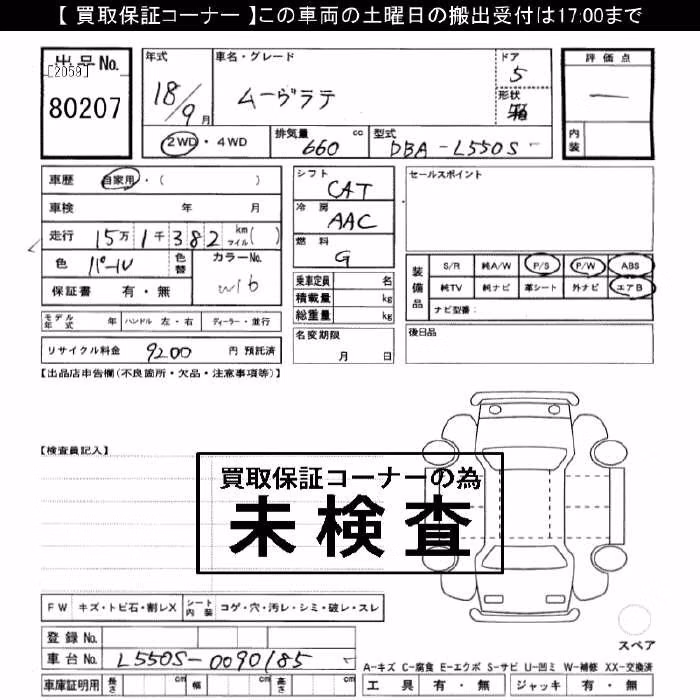 【 買取保証コーナー 】この車両の土曜日の搬出受付は17:00まで
出品No.
[2059]
80207
年式
18/9月
車名・グレード
ムーヴラテ
ドア
5
形状
箱
評価点
―
内装
2WD・4WD
排気量 660 cc
型式 DBA-L550S-
車歴 自家用・( )
車検 年 月
走行 15万1千382 km マイル( )
色 パール 色替
カラーNo.
W16
保証書 有・無
シフト
CAT
冷房
AAC
燃料
G
乗車定員 名
積載量 kg
総重量 kg
セールスポイント
装備品
S/R 純A/W P/S P/W ABS
純TV 純ナビ 革シート 外ナビ エアB
ナビ型番:
モデル年式 年 ハンドル 左・右 ディーラー・並行
リサイクル料金 9200 円 預託済
名変期限
月 日
後日品
【出品店申告欄(不良箇所・欠品・注意事項等)】
【検査員記入】
買取保証コーナーの為
未検査
FW キズ・トビ石・割レX シート内装 コゲ・穴・汚レ・シミ・破レ・スレ
登録No.
車台No. L550S-0090185
スペア
A-キズ C-腐食 E-エクボ S-サビ U-凹ミ W-補修 XX-交換済
車庫証明用 長さ cm 幅 cm 高さ cm
工具 有・無 ジャッキ 有・無